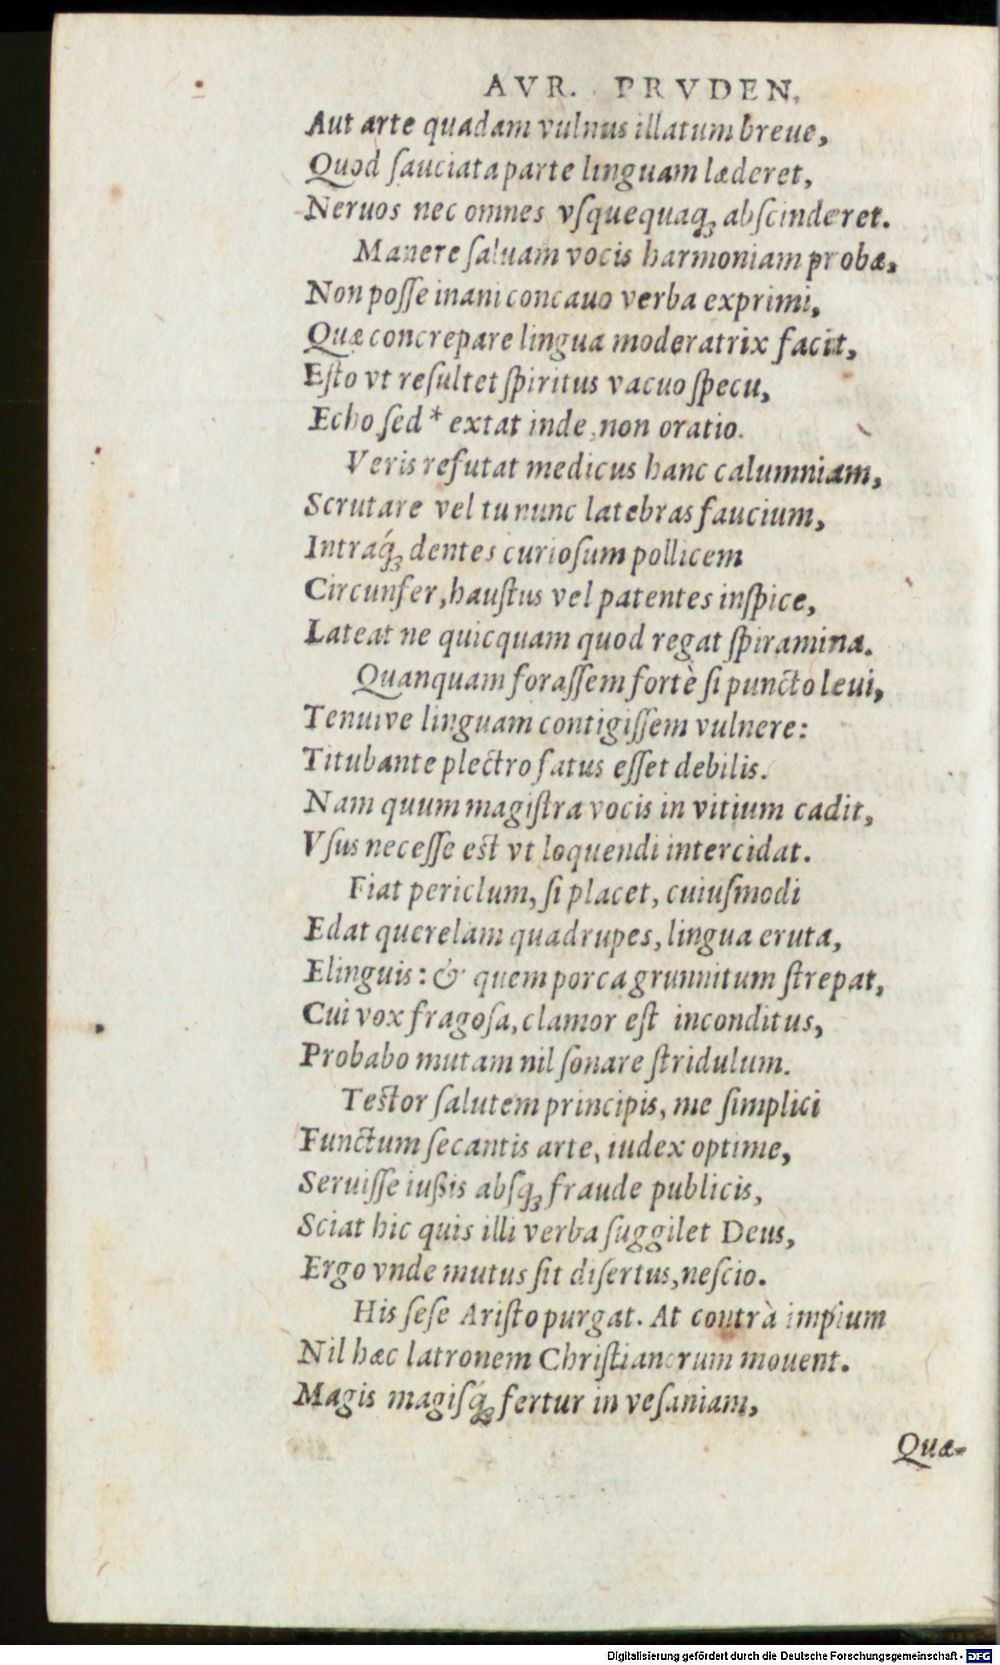 AVR. PRVDEN.
Aut arte quadam vulnus illatum breue,
Quod ſauciata parte linguam læderet,
Neruos nec omnes vſquequaq; abſcinderet.
Manere ſaluam vocis harmoniam probæ,
Non poſſe inani concauo verba exprimi,
Quæ concrepare lingua moderatrix facit,
Eſto vt reſultet ſpiritus vacuo ſpecu,
Echo ſed * extat inde, non oratio.
Veris refutat medicus hanc calumniam,
Scrutare vel tu nunc latebras faucium,
Intraq́; dentes curioſum pollicem
Circunfer, hauſtus vel patentes inſpice,
Lateat ne quicquam quod regat ſpiramina.
Quanquam foraſſem fortè ſi puncto leui,
Tenuive linguam contigiſſem vulnere:
Titubante plectro fatus eſſet debilis.
Nam quum magiſtra vocis in vitium cadit,
Vſus neceſſe est vt loquendi intercidat.
Fiat periclum, ſi placet, cuiuſmodi
Edat querelam quadrupes, lingua eruta,
Elinguis: & quem porca grunnitum ſtrepat,
Cui vox fragoſa, clamor eſt inconditus,
Probabo mutam nil ſonare ſtridulum.
Testor ſalutem principis, me ſimplici
Functum ſecantis arte, iudex optime,
Seruiſſe iußis abſq; fraude publicis,
Sciat hic quis illi verba ſuggilet Deus,
Ergo vnde mutus ſit diſertus, neſcio.
His ſeſe Ariſto purgat. At contrà impium
Nil hæc latronem Chriſtianorum mouent.
Magis magiſq́; fertur in veſaniam,
Quæ-
Digitalisierung gefördert durch die Deutsche Forschungsgemeinschaft - DFG